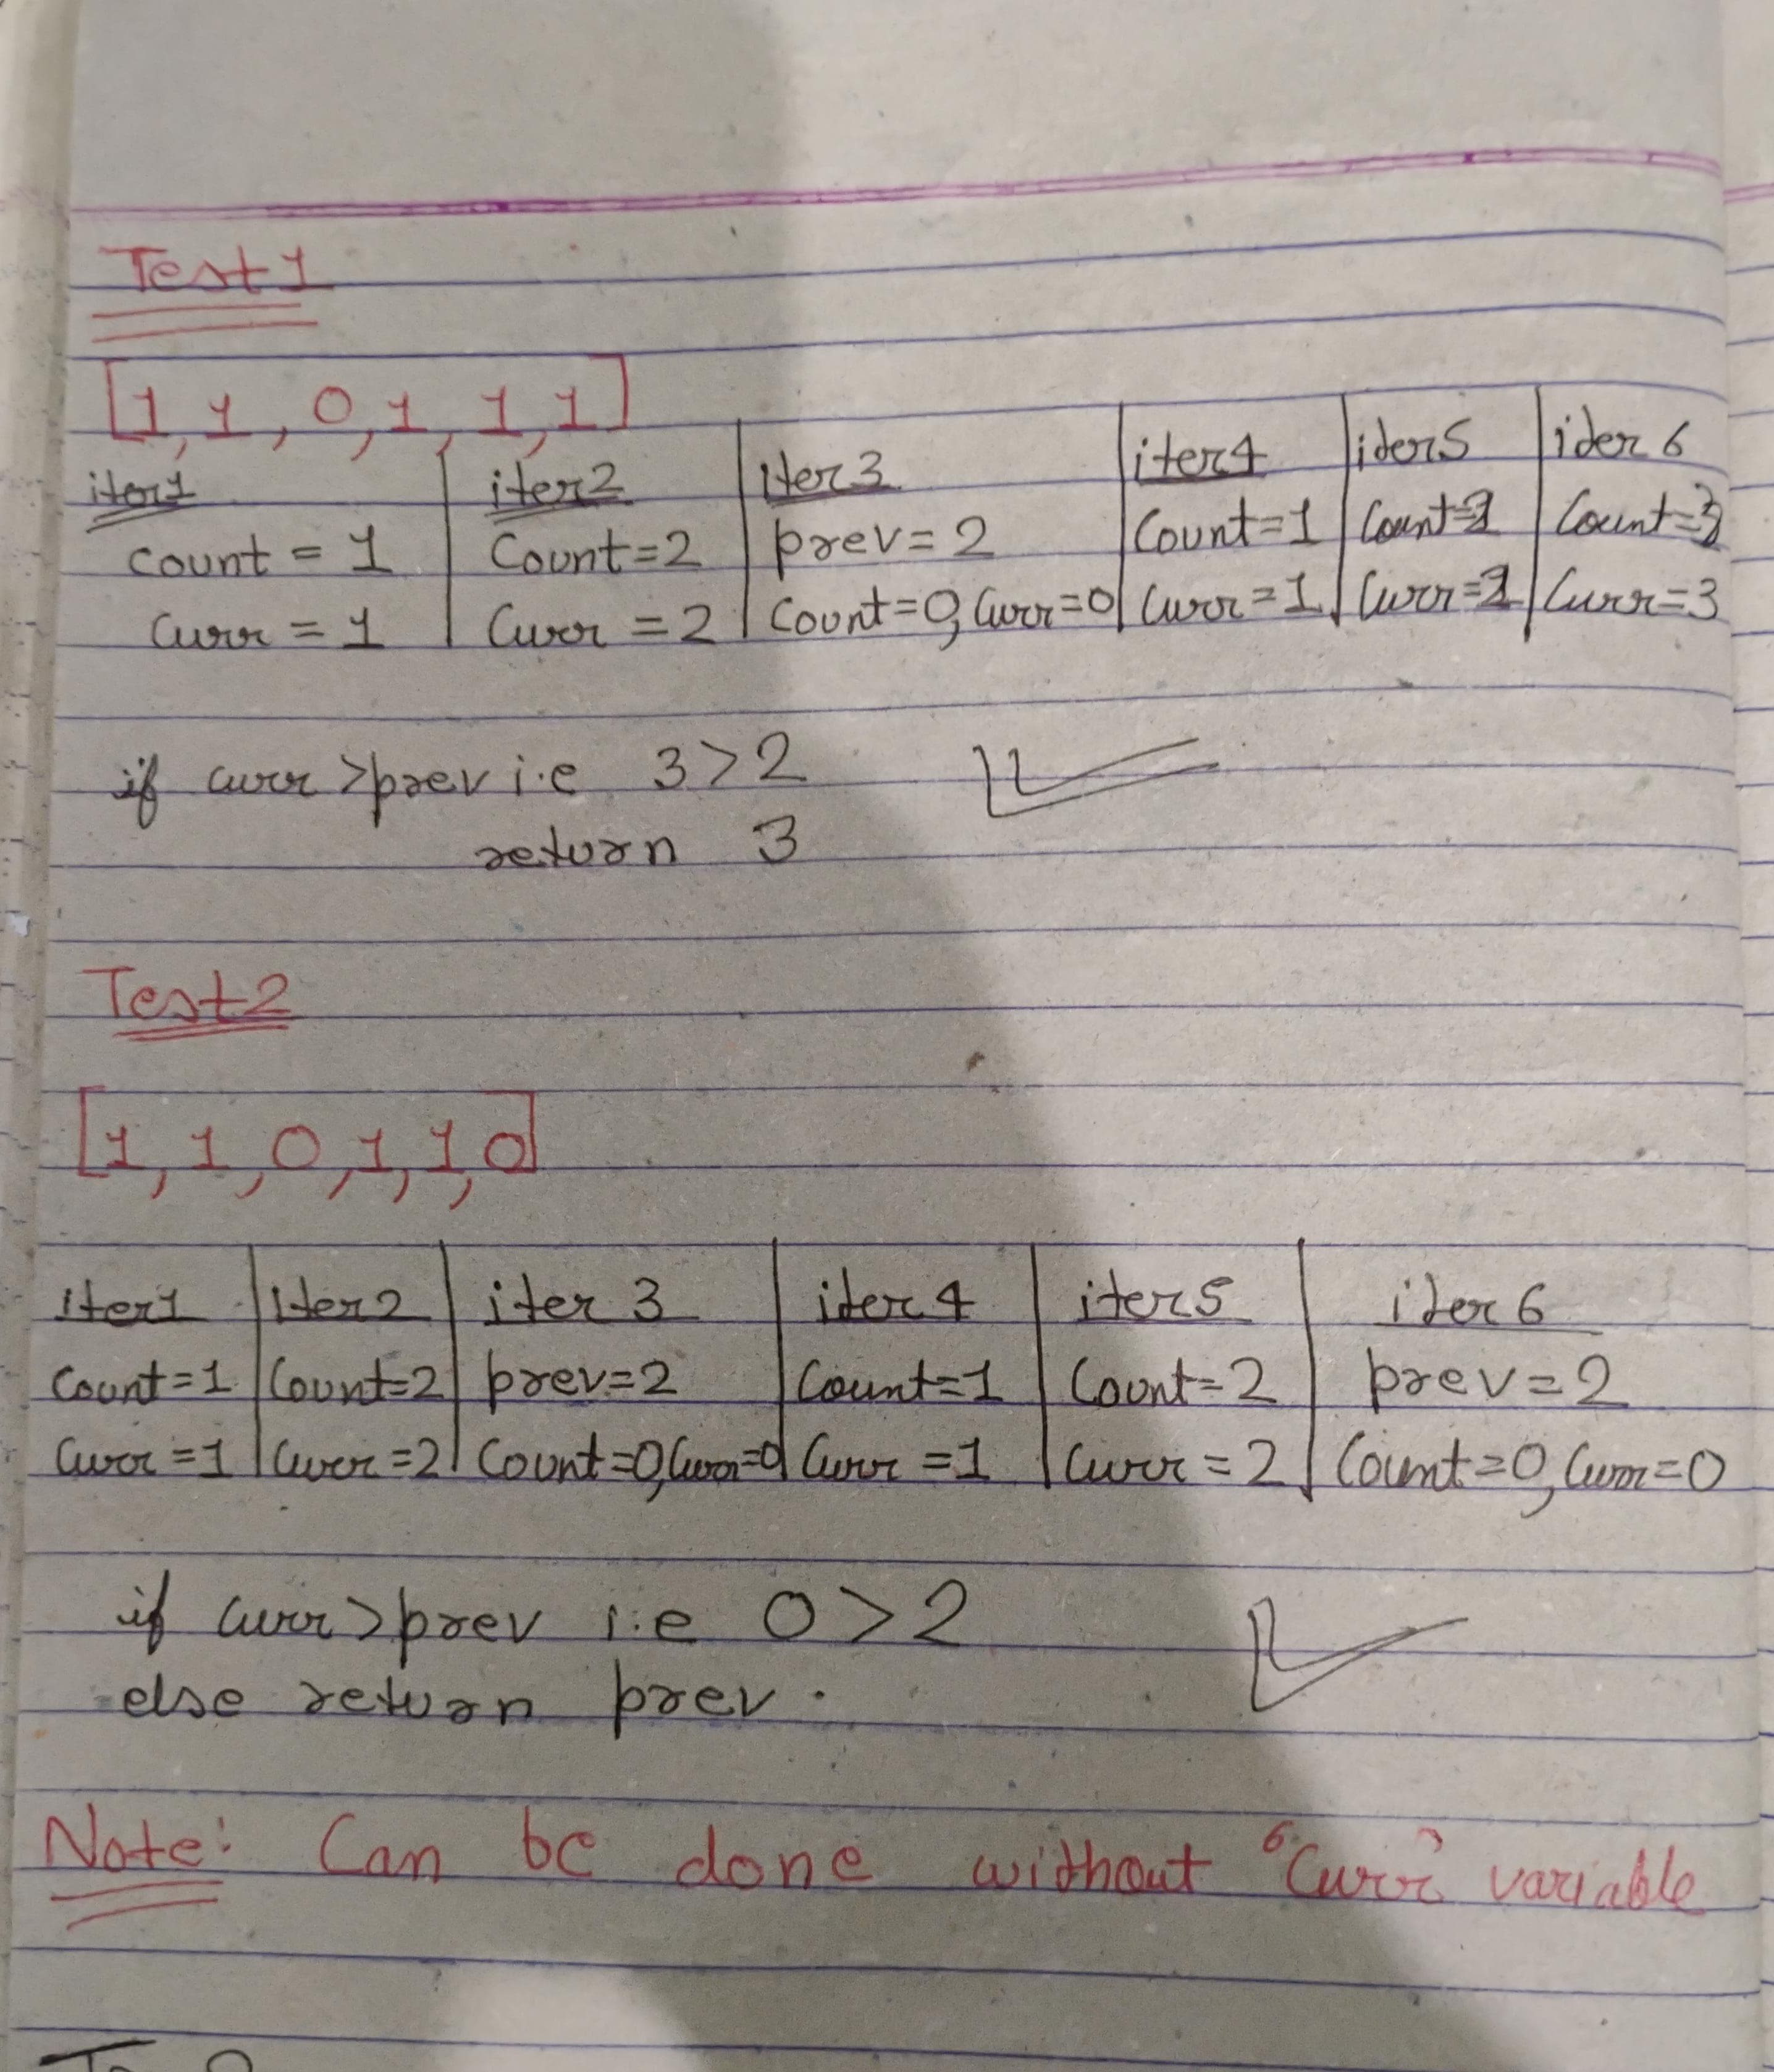 Test1
[1, 1, 0, 1, 1, 1]
iter1 iter2 iter3 iter4 iter5 iter6
count = 1 Count=2 prev=2 Count=1 Count=2 Count=3
Curr = 1 Curr = 2 Count=0, Curr=0 Curr = 1 Curr=2 Curr=3
if curr >prev i.e 3>2
return 3
Test2
[1, 1, 0, 1, 1, 0]
iter1 iter2 iter 3 iter 4 iter5 iter 6
Count=1 Count=2 prev=2 Count=1 Count=2 prev=2
Curr=1 Curr=2 Count=0, Curr=0 Curr =1 Curr = 2 Count=0, Curr=0
if Curr>prev i.e 0>2
else return prev.
Note: Can be done without "Curr" variable